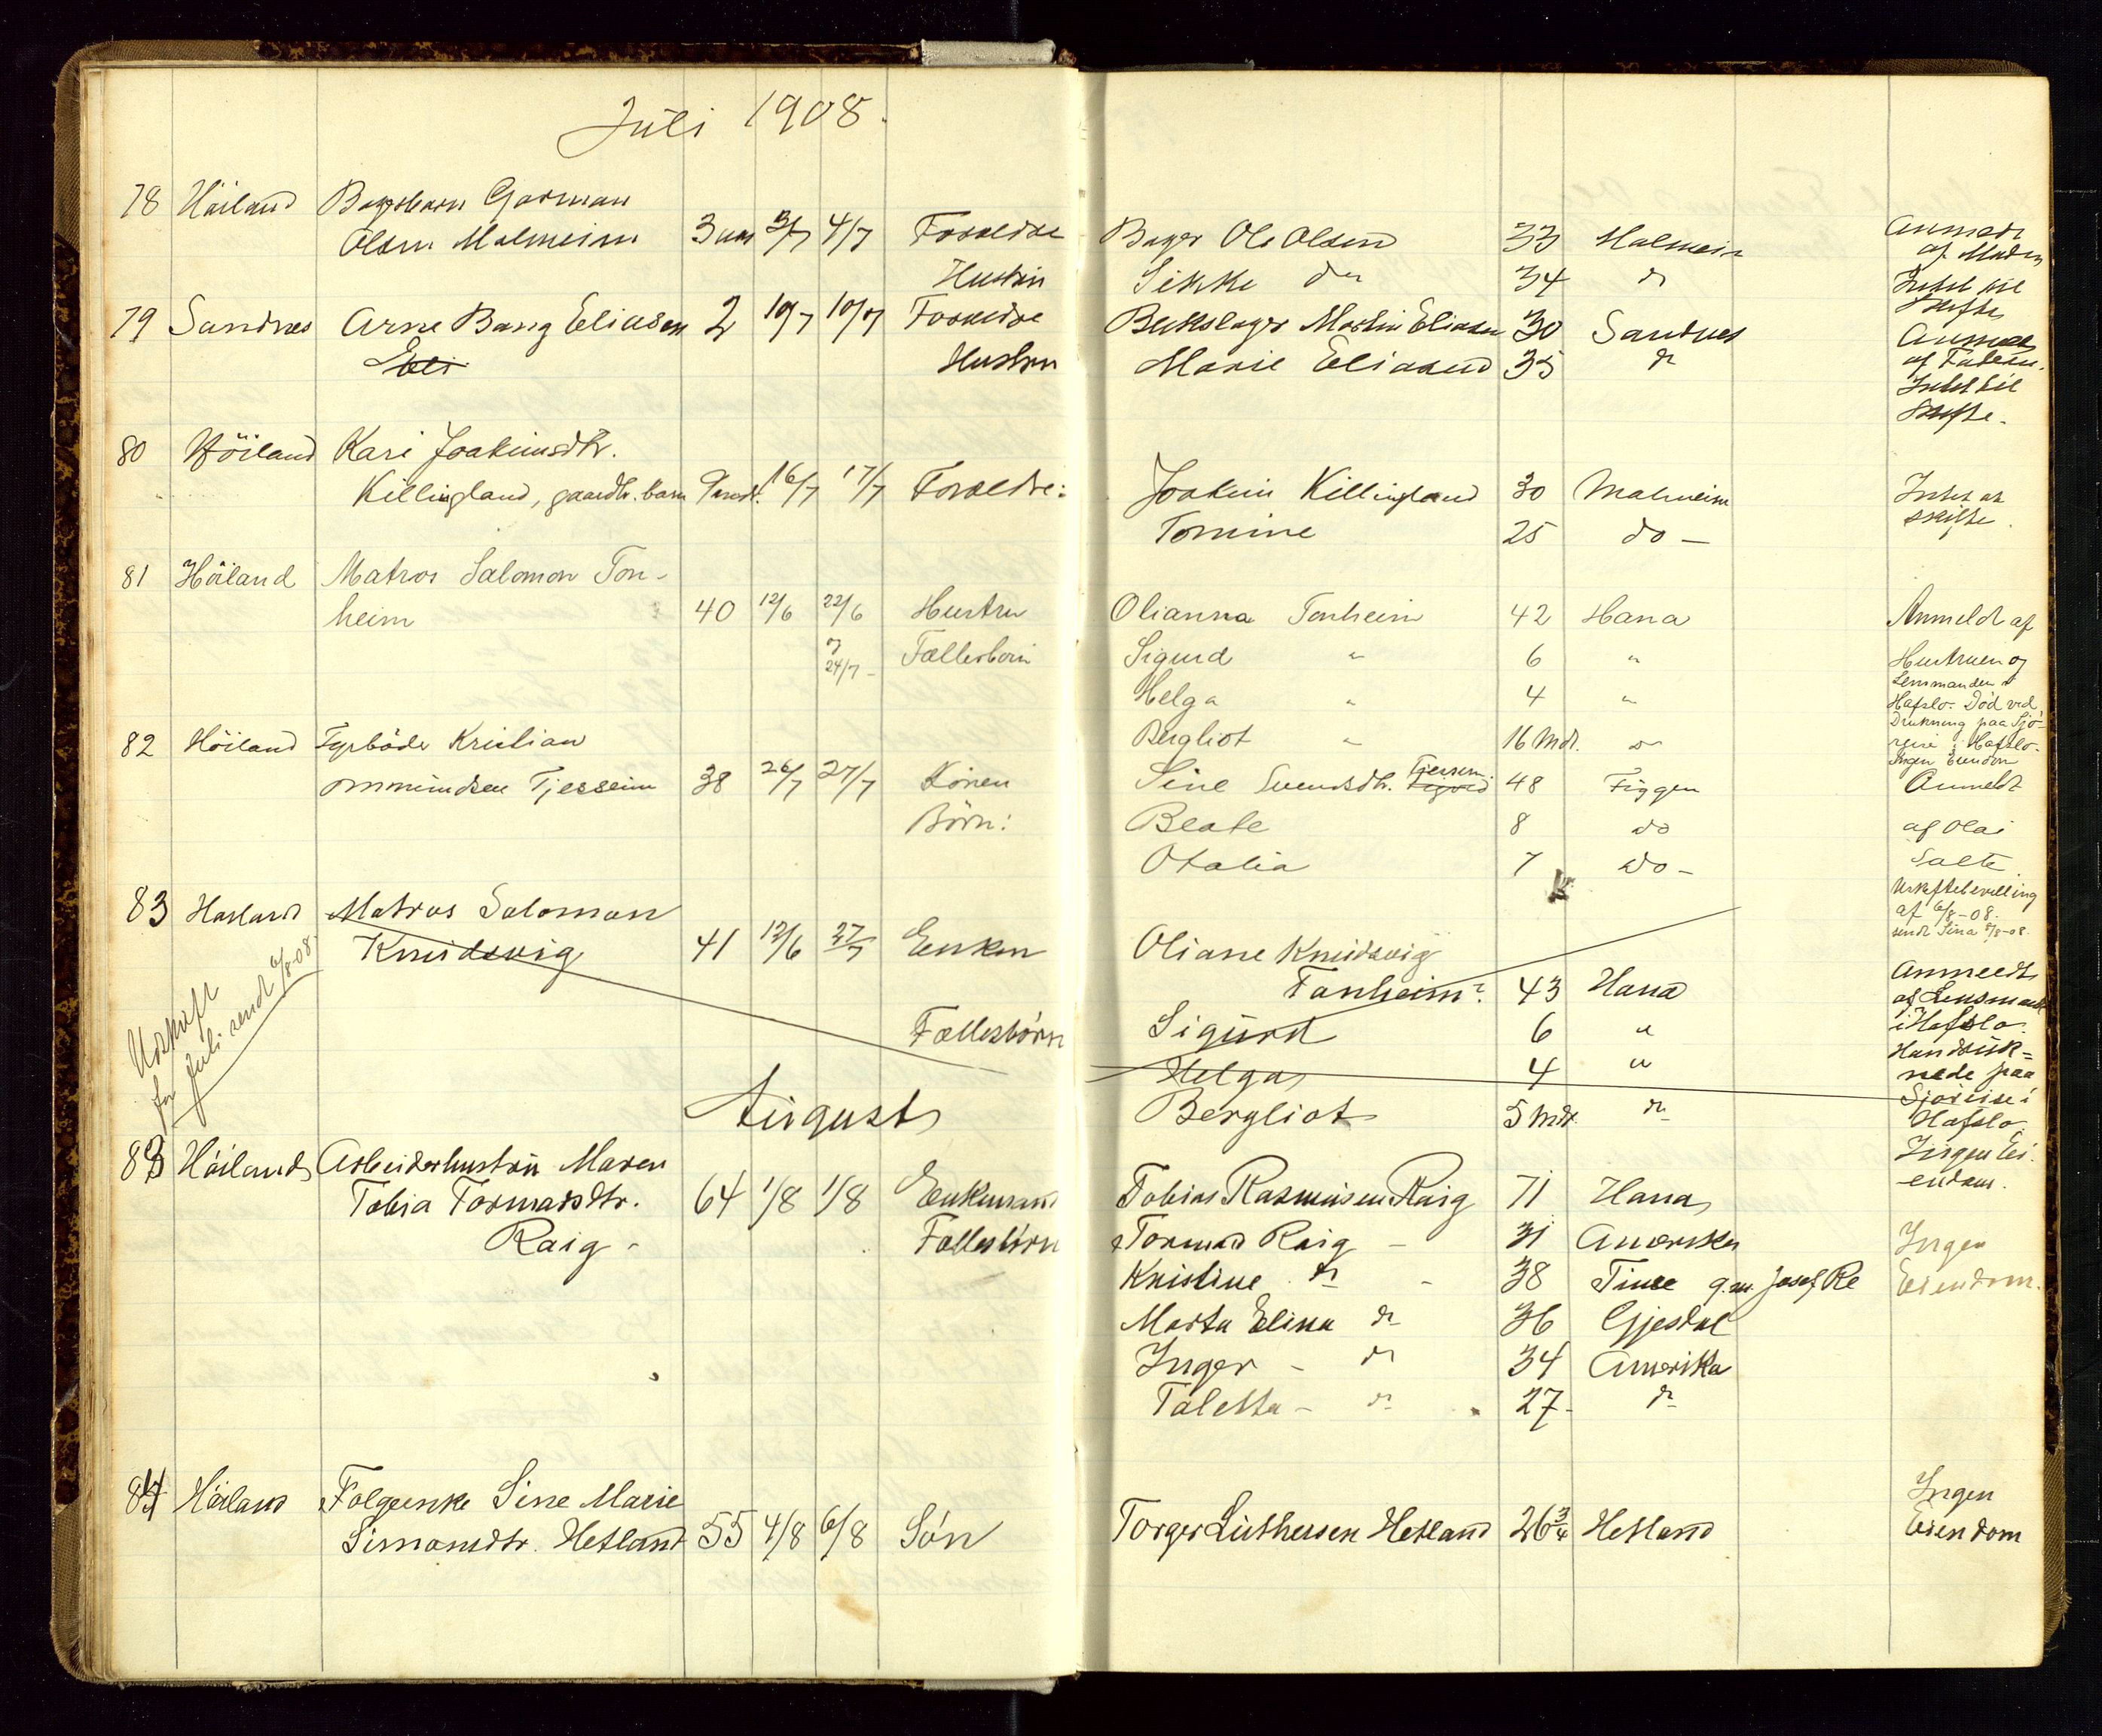 Juli 1908.
78 Höiland Bagerbarn Garman
Olsen Malmeim 3 3/7 4/7 Forældre Bager Ole Olsen 33 Malmein Anmeldt
af Moderen
Hustru Sikke do 34 do Intet til
Skifte
79 Sandnes Arne Bang Eliasen 2 10/7 10/7 Forældre Martin Eliasen 30 Sandnes Anmeldt
Eli Hustru Marie Eliasen 35 do af Faderen.
Intet til
Skifte.
80 Höiland Kari Joakimsdtr.
Killingland, gaardb. barn 9 mdr. 16/7 17/7 Forældre: Joakim Killingland 30 Malmeim Intet at
skifte.
Tomine 25 do -
81 Höiland Matros Salomon Ton-
heim 40 12/6 22/6 Hustru Olianna Tonheim 42 Hana Anmeldt af
og 24/7 - Fællesbørn Sigurd " 6 " Hustruen og
Lensmanden i
Helga " 4 " Hafslo. Död ved
Drukning paa Sjö-
Bergliot " 16 Mdr. do reise i Hafslo.
Ingen Eiendom
82 Höiland Fyrböder Kristian
Ommundsen Tjesseim 38 26/7 27/7 Konen Sine Svendsdtr. Tjessem. 48 Figgen Anmeldt
Börn: Beate 8 do af Olai
Otalia 7 do - Salte
Uskiftebevilling
af 6/8-08.
sendt Sina 8/8-08.
83 Hetland Matros Salomon
Knudsvig 41 12/6 27/7 Enken Oliane Knudsvig
Tanheim? 43 Hana Anmeldt
af Lensmand
Fællesbörn Sigurd 6 " i Hafslo.
Han druk=
Helga 4 " nede paa
Sjöreise i
Bergliot 5 Mdr. do Hafslo.
Ingen Ei-
endom.
Udskrift
for Juli sendt 6/8-08.
August
83 Höiland Arbeiderhustru Maren
Tobia Tormodsdtr. 64 1/8 1/8 Enkemand Tobias Rasmusen Raig 71 Hana
Raig - Fællesbörn Tormod Raig - 31 Amerika Ingen
Kristine do - 38 Time g.m. Josef Re Eiendom.
Marta Elina do 36 Gjesdal
Inger - do 34 Amerika
Taletta - do 27 - do
84 Höiland Folgeenke Sine Marie Ingen
Simonsdtr. Hetland 55 4/8 6/8 Sön Torger Luthersen Hetland 26 3/4 Hetland Eiendom